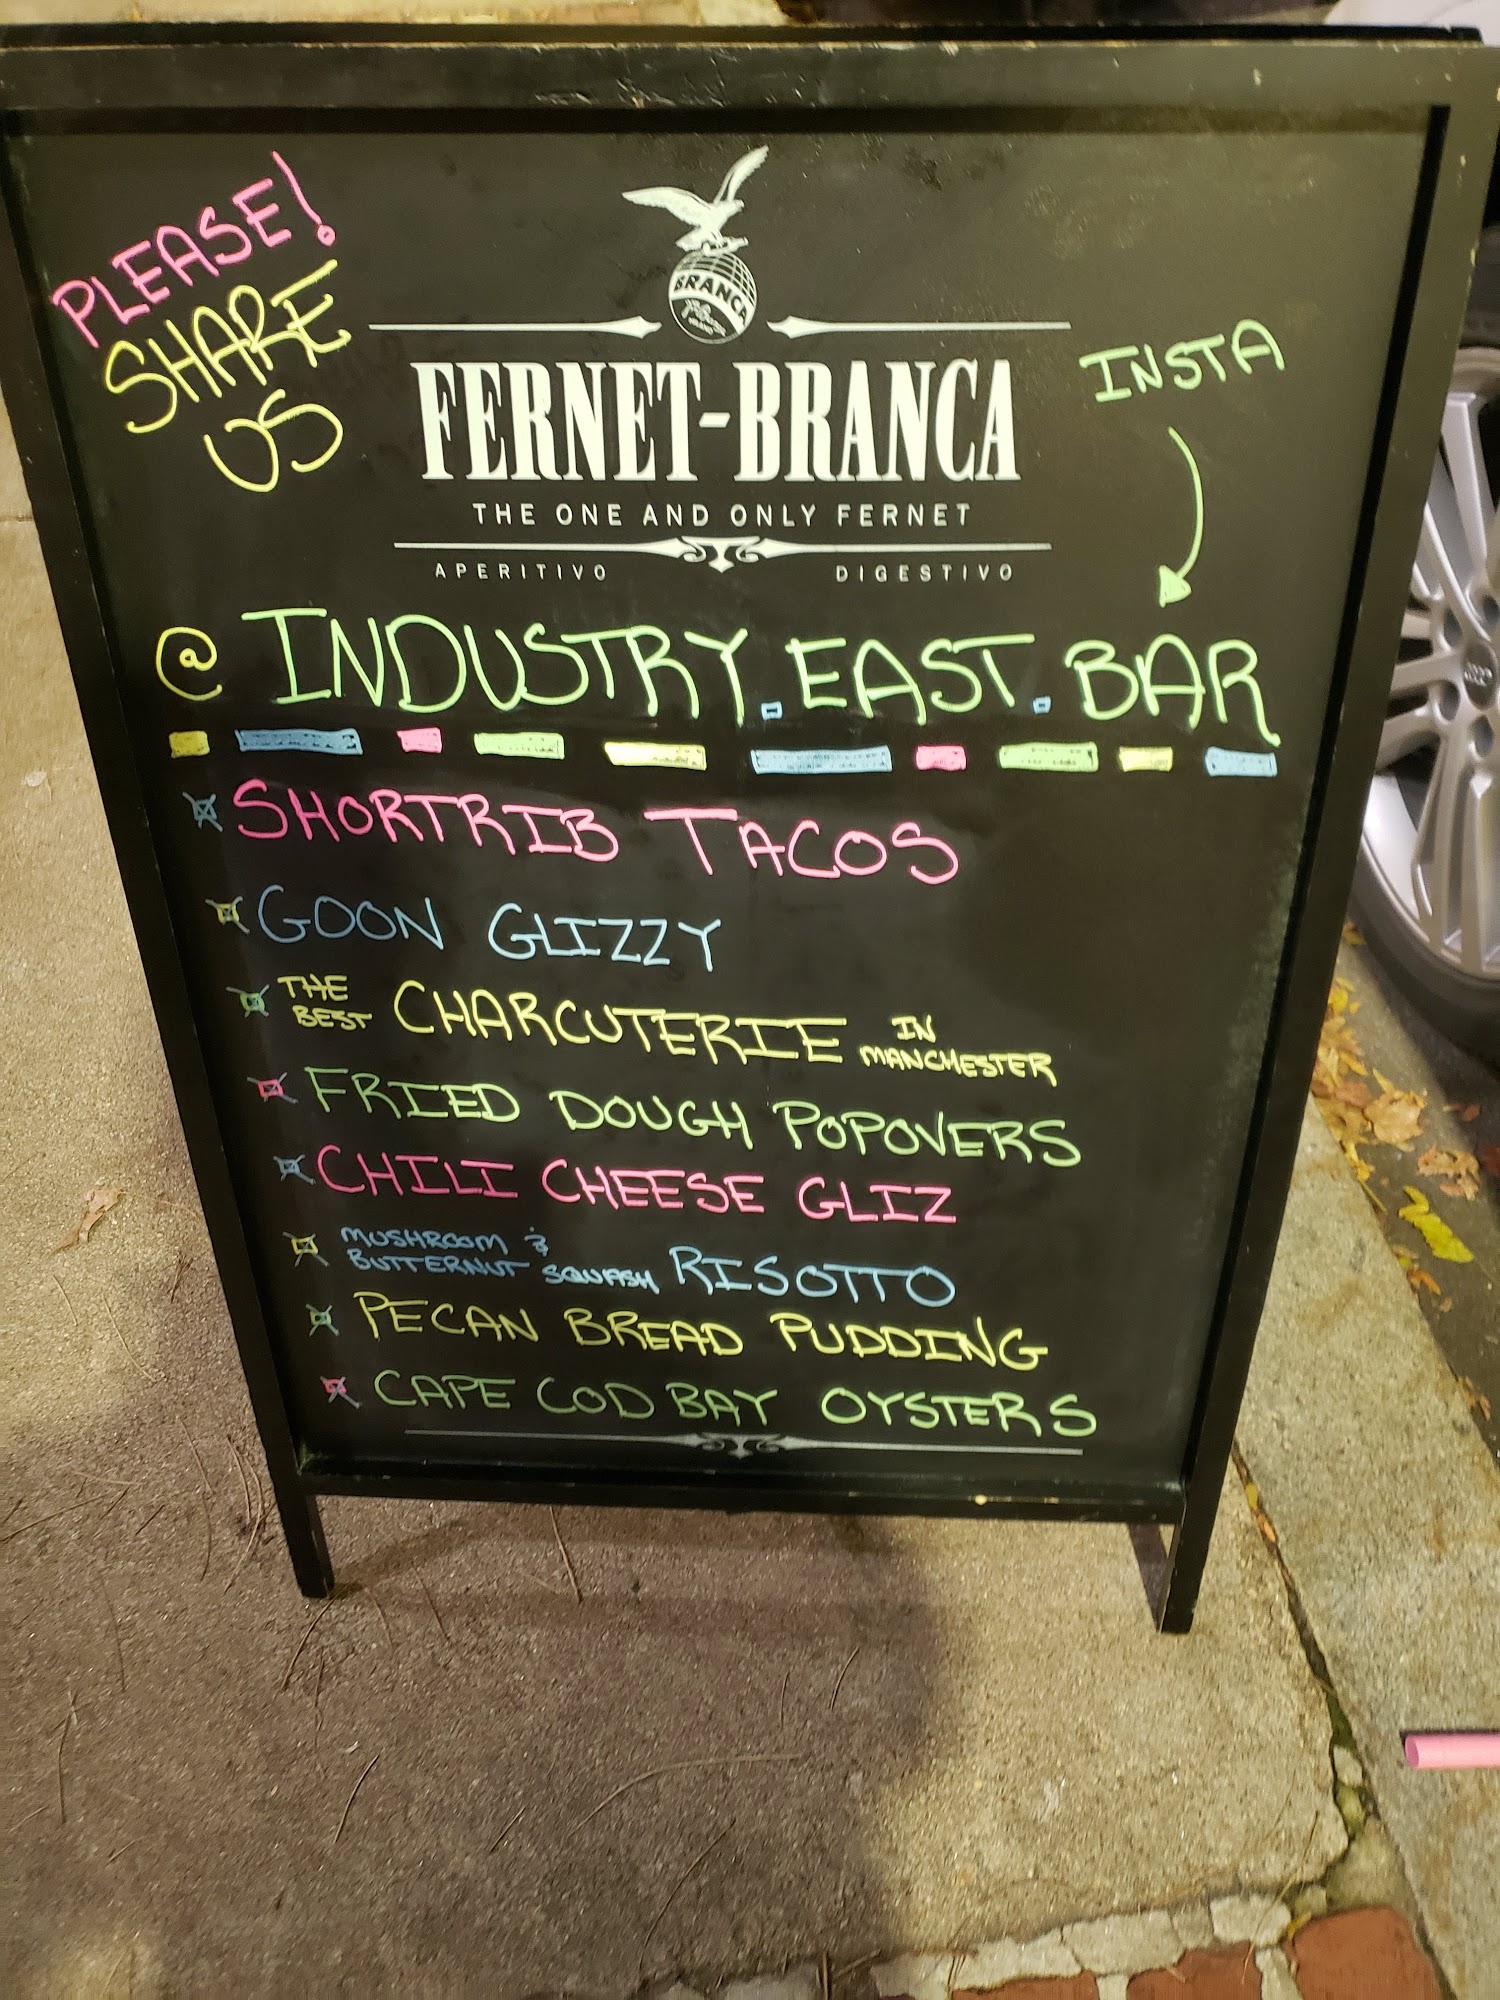 PLEASE!
SHARE
US
BRANCA
FERNET-BRANCA
THE ONE AND ONLY FERNET
APERITIVO DIGESTIVO
INSTA
@ INDUSTRY.EAST.BAR
SHORTRIB TACOS
GOON GLIZZY
THE BEST CHARCUTERIE IN MANCHESTER
FRIED DOUGH POPOVERS
CHILI CHEESE GLIZ
MUSHROOM & BUTTERNUT SQUASH RISOTTO
PECAN BREAD PUDDING
CAPE COD BAY OYSTERS